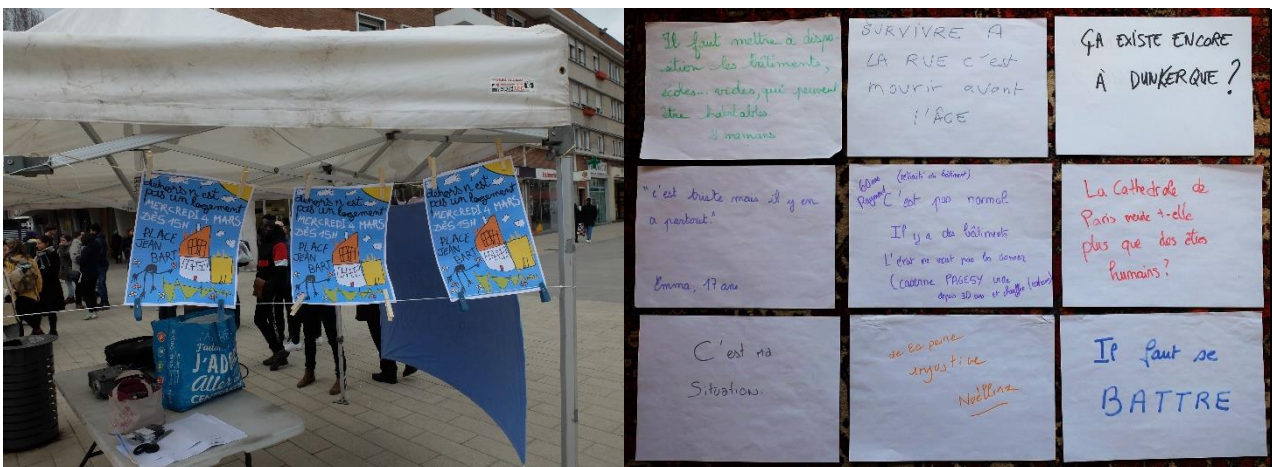 dehors n'est
pas un logement
MERCREDI 4 MARS
DÈS 15H
PLACE
JEAN
BART
dehors n'est
pas un logement
MERCREDI 4 MARS
DÈS 15H
PLACE
JEAN
BART
dehors n'est
pas un logement
MERCREDI 4 MARS
DÈS 15H
PLACE
JEAN
BART
J'AD
Il faut mettre à dispo-
sition les bâtiments,
écoles... vides, qui peuvent
être habitables
mamans
SURVIVRE A
LA RUE c'est
mourir avant
l'ÂGE
ÇA EXISTE ENCORE
À DUNKERQUE ?
"c'est triste mais il y en
a partout"
Emma, 17 ans
60 ans (retraité du bâtiment)
C'est pas normal
Il y a des bâtiments
L'état ne veut pas les donner
(caserne vide
depuis 30 ans et chauffée
La Cathédrale de
Paris mérite t-elle
plus que des êtres
humains ?
C'est ma
Situation.
de la peine
injustice
Noëlline
Il faut se
BATTRE